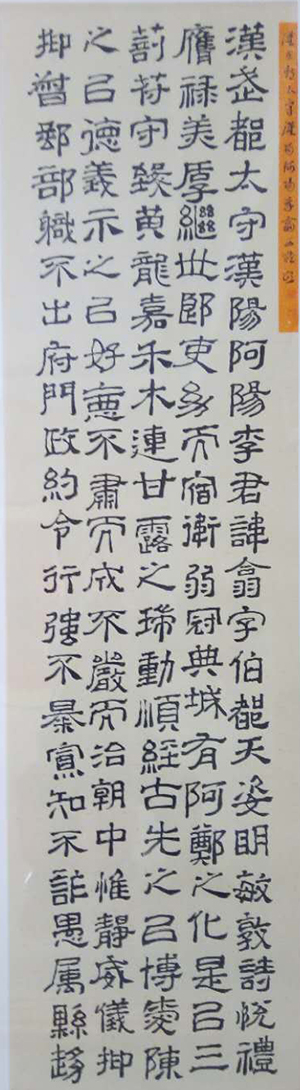 漢武都太守漢陽阿陽李君諱翕字伯都天姿明敏敦詩悅禮
膺祿美厚繼世郎吏幼而宿衛弱冠典城有阿鄭之化是以三
剖符守致黃龍嘉禾木連甘露之瑞動順經古先之以博愛陳
之以德義示之以好惡不肅而成不嚴而治朝中惟靜威儀抑
抑督郵部職不出府門政約令行強不暴寡知不詐愚属縣趍